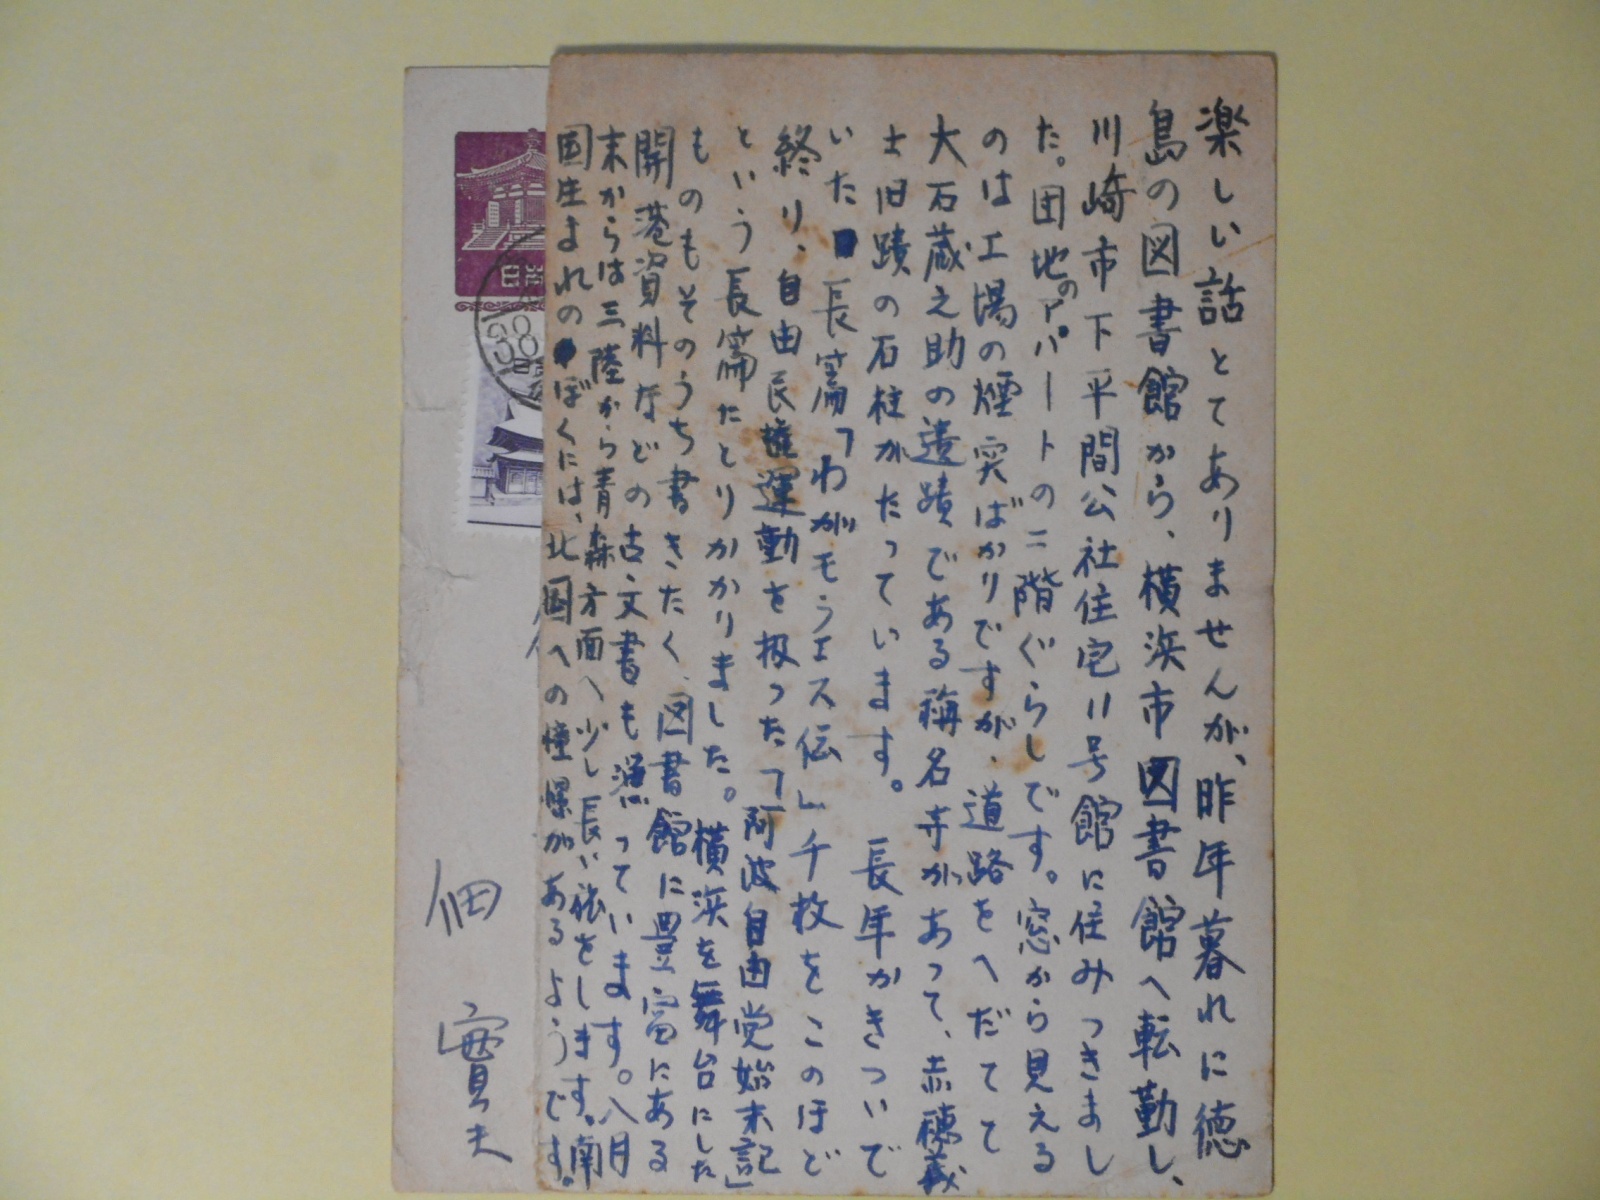 楽しい話とてありませんが、昨年暮れに徳
島の図書館から、横浜市図書館へ転勤し、
川崎市下平間公社住宅11号館に住みつきまし
た。団地のアパートの二階ぐらしです。窓から見える
のは工場の煙突ばかりですが、道路をへだてて
大石蔵之助の遺蹟である稱名寺があって、赤穂義
士旧蹟の石柱がたっています。長年かきついで
いた長篇「わがモラエス伝」千枚をこのほど
終り、自由民権運動を扱った「阿波自由党始末記」
という長篇たとりかかりました。横浜を舞台にした
ものもそのうち書きたく、図書館に豊富にある
開港資料などの古文書も漁っています。八月
末からは三陸から青森方面へ少し長い旅をします。南
国生まれのぼくには、北国への憧憬があるようです。
佃 實夫
38